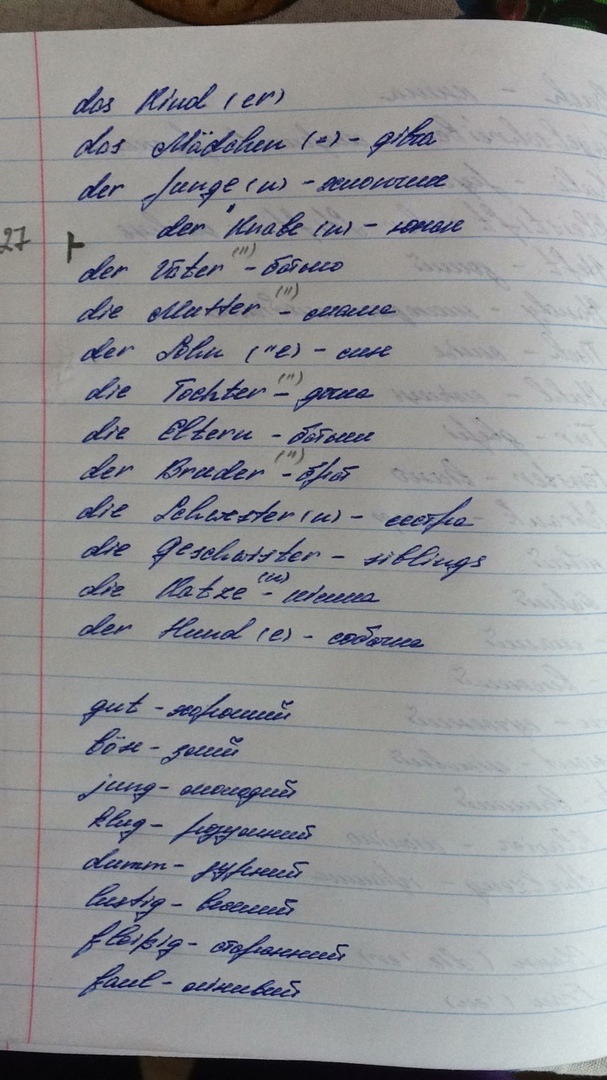 das Kind (er)
das Mädchen (-) - дівча
der Junge (n) - хлопчик
27 der Knabe (n) - юнак
der Vater (") - батько
die Mutter (") - мама
der Sohn ("e) - син
die Tochter (") - дочка
die Eltern - батьки
der Bruder (") - брат
die Schwester (n) - сестра
die Geschwister - siblings
die Katze (n) - кішка
der Hund (e) - собачка
gut - хороший
böse - злий
jung - молодий
klug - розумний
dumm - дурний
lustig - веселий
fleißig - старанний
faul - лінивий